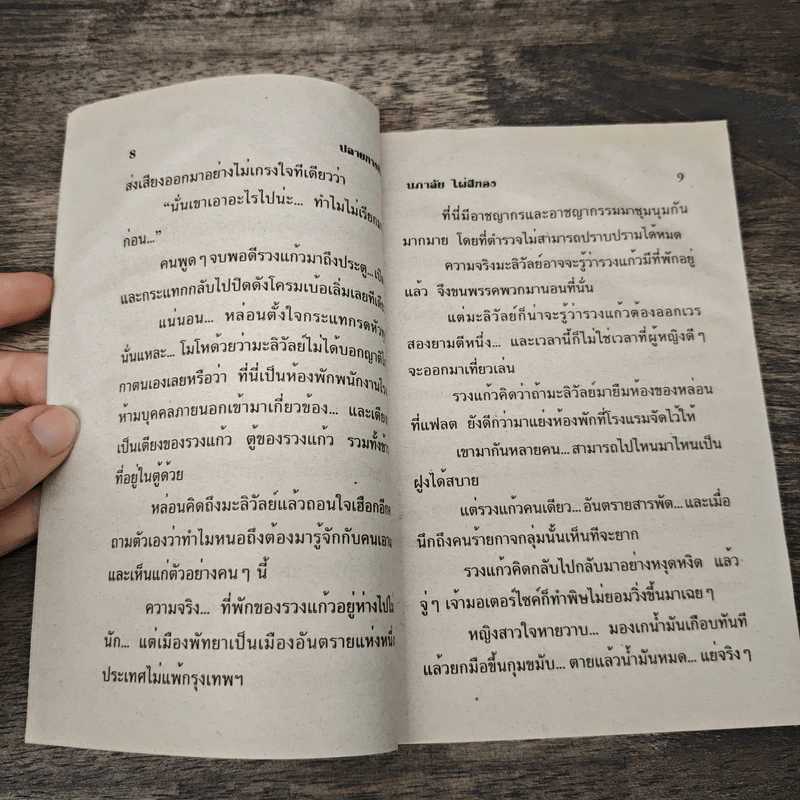 8
ส่งเสียงออกมาอย่างไม่เกรงใจทีเดียวว่า
“นั่นเขาเอาอะไรไปน่ะ... ทำไมไม่
ก่อน...”
คนพูด ๆ จบพอดีรวงแก้วมาถึงประตู...
และกระแทกกลับไปปิดดังโครมเบ้อเริ่มเลย
แน่นอน... หล่อนตั้งใจกระแทกรด
นั่นแหละ... โมโหด้วยว่ามะลิวัลย์ไม่ได้บอก
กาตนเองเลยหรือว่า ที่นี่เป็นห้องพักพนักงาน
ห้ามบุคคลภายนอกเข้ามาเกี่ยวข้อง... และ
เป็นเตียงของรวงแก้ว ตู้ของรวงแก้ว รวมทั้ง
ที่อยู่ในตู้ด้วย
หล่อนคิดถึงมะลิวัลย์แล้วถอนใจเฮือก
ถามตัวเองว่าทำไมหนอถึงต้องมารู้จักกับคน
และเห็นแก่ตัวอย่างคน ๆ นี้
ความจริง... ที่พักของรวงแก้วอยู่ห่างไป
นัก... แต่เมืองพัทยาเป็นเมืองอันตรายแห่ง
ประเทศไม่แพ้กรุงเทพฯ
นภาลัย ไผ่สีทอง 9
ที่นี่มีอาชญากรและอาชญากรรมมาชุมนุมกัน
มากมาย โดยที่ตำรวจไม่สามารถปราบปรามได้หมด
ความจริงมะลิวัลย์อาจจะรู้ว่ารวงแก้วมีที่พักอยู่
แล้ว จึงขนพรรคพวกมานอนที่นั่น
แต่มะลิวัลย์ก็น่าจะรู้ว่ารวงแก้วต้องออกเวร
สองยามตีหนึ่ง... และเวลานี้ก็ไม่ใช่เวลาที่ผู้หญิงดี ๆ
จะออกมาเที่ยวเล่น
รวงแก้วคิดว่าถ้ามะลิวัลย์มายืมห้องของหล่อน
ที่แฟลต ยังดีกว่ามาแย่งห้องพักที่โรงแรมจัดไว้ให้
เขามากันหลายคน... สามารถไปไหนมาไหนเป็น
ฝูงได้สบาย
แต่รวงแก้วคนเดียว... อันตรายสารพัด... และเมื่อ
นึกถึงคนร้ายกาจกลุ่มนั้นเห็นทีจะยาก
รวงแก้วคิดกลับไปกลับมาอย่างหงุดหงิด แล้ว
จู่ ๆ เจ้ามอเตอร์ไซค์ก็ทำพิษไม่ยอมวิ่งขึ้นมาเฉย ๆ
หญิงสาวใจหายวาบ... มองเกน้ำมันเกือบทันที
แล้วยกมือขึ้นกุมขมับ... ตายแล้วน้ำมันหมด... แย่จริง ๆ